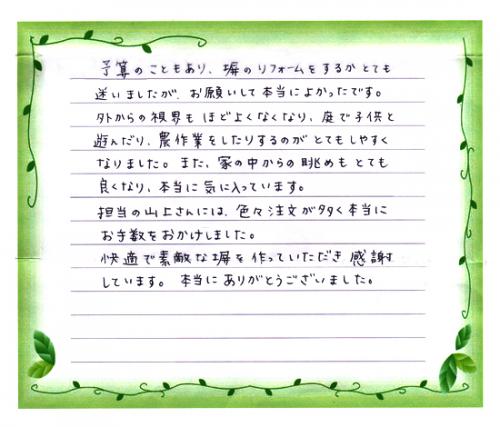 予算のこともあり、塀のリフォームをするかとても
迷いましたが、お願いして本当によかったです。
外からの視界もほどよくなくなり、庭で子供と
遊んだり、農作業をしたりするのがとてもしやすく
なりました。また、家の中からの眺めもとても
良くなり、本当に気に入っています。
担当の山上さんには、色々注文が多く本当に
お手数をおかけしました。
快適で素敵な塀を作っていただき感謝
しています。本当にありがとうございました。